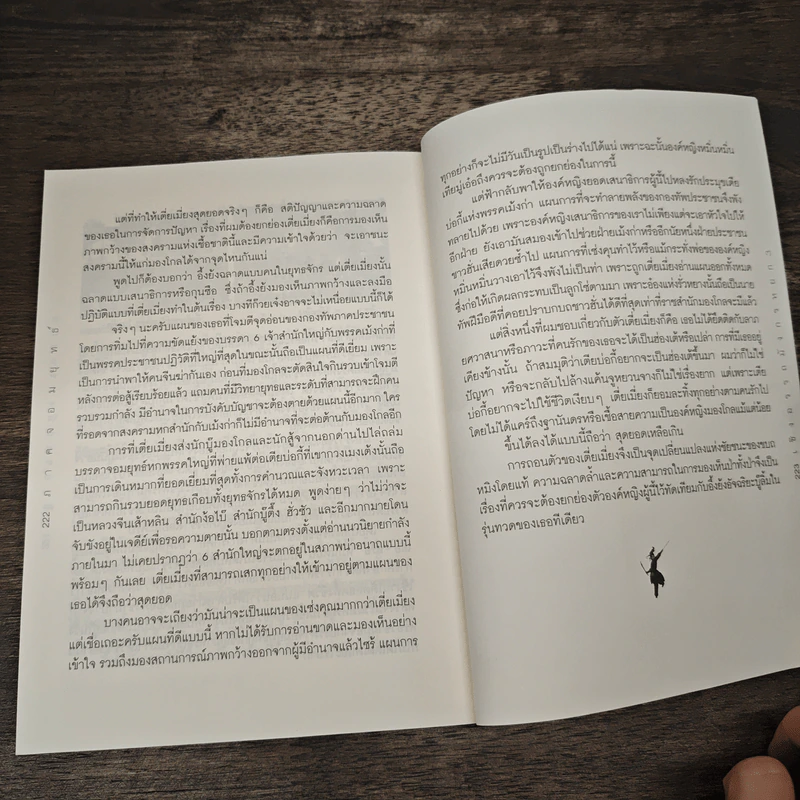 แต่ที่ทำให้เตี่ยเมี่ยงสุดยอดจริงๆ ก็คือ สติปัญญาและความฉลาด
ของเธอในการจัดการปัญหา เรื่องที่ผมต้องยกย่องเตี่ยเมี่ยงก็คือการมองเห็น
ภาพกว้างของสงครามแห่งเชื้อชาตินี้และมีความเข้าใจด้วยว่า จะเอาชนะ
สงครามนี้ให้แก่มองโกลได้จากจุดไหนกันแน่
พูดไปก็ต้องบอกว่า อึ้งย้งฉลาดแบบคนในยุทธจักร แต่เตี่ยเมี่ยงนั้น
ฉลาดแบบเสนาธิการหรือกุนซือ ซึ่งถ้าอึ้งย้งมองเห็นภาพกว้างและลงมือ
ปฏิบัติแบบที่เตี่ยเมี่ยงทำในต้นเรื่อง บางทีก๊วยเจ๋งอาจจะไม่เหนื่อยแบบนี้ก็ได้
จริงๆ นะครับแผนของเธอที่โจมตีจุดอ่อนของกองทัพภาคประชาชน
โดยการทิ่มไปที่ความขัดแย้งของบรรดา 6 เจ้าสำนักใหญ่กับพรรคเม้งก่าที่
เป็นพรรคประชาชนปฏิวัติที่ใหญ่ที่สุดในขณะนั้นถือเป็นแผนที่ดีเยี่ยม เพราะ
เป็นการนำพาให้คนจีนฆ่ากันเอง ก่อนที่มองโกลจะตัดสินใจกินรวบเข้าโจมตี
หลังการต่อสู้เรียบร้อยแล้ว แถมคนที่มีวิทยายุทธและระดับที่สามารถจะฝึกคน
รวบรวมกำลัง มีอำนาจในการบังคับบัญชาจะต้องตายด้วยแผนนี้อีกมาก ใคร
ที่รอดจากสงครามหกสำนักกับเม้งก่าก็ไม่มีอำนาจที่จะต่อต้านกับมองโกลอีก
การที่เตี่ยเมี่ยงส่งนักบู๊มองโกลและนักสู้จากนอกด่านไปไล่ถล่ม
บรรดาจอมยุทธ์หกพรรคใหญ่ที่พ่ายแพ้ต่อเตียบ่อกี้ที่เขากวงเมงเต้งนั้นถือ
เป็นการเดินหมากที่ยอดเยี่ยมที่สุดทั้งการคำนวณและจังหวะเวลา เพราะ
สามารถกินรวบยอดยุทธเกือบทั้งยุทธจักรได้หมด พูดง่ายๆ ว่าไม่ว่าจะ
เป็นหลวงจีนเส้าหลิน สำนักง้อไบ๊ สำนักบู๊ตึ้ง ฮั้วซัว และอีกมากมายโดน
จับขังอยู่ในเจดีย์เพื่อรอความตายนั้น บอกตามตรงตั้งแต่อ่านนวนิยายกำลัง
ภายในมา ไม่เคยปรากฏว่า 6 สำนักใหญ่จะตกอยู่ในสภาพน่าอนาถแบบนี้
พร้อมๆ กันเลย เตี่ยเมี่ยงที่สามารถเสกทุกอย่างให้เข้ามาอยู่ตามแผนของ
เธอได้จึงถือว่าสุดยอด
บางคนอาจจะเถียงว่ามันน่าจะเป็นแผนของเซ่งคุณมากกว่าเตี่ยเมี่ยง
แต่เชื่อเถอะครับแผนที่ดีแบบนี้ หากไม่ได้รับการอ่านขาดและมองเห็นอย่าง
เข้าใจ รวมถึงมองสถานการณ์ภาพกว้างออกจากผู้มีอำนาจแล้วไซร้ แผนการ
222 ภาคจอมยุทธ์
ทุกอย่างก็จะไม่มีวันเป็นรูปเป็นร่างไปได้แน่ เพราะฉะนั้นองค์หญิงหมิ่นหมิ่น
เทียมู่เอ๋อถึงควรจะต้องถูกยกย่องในการนี้
แต่ฟ้ากลับพาให้องค์หญิงยอดเสนาธิการผู้นี้ไปหลงรักประมุขเตีย
บ่อกี้แห่งพรรคเม้งก่า แผนการที่จะทำลายพลังของกองทัพประชาชนจึงพัง
ทลายไปด้วย เพราะองค์หญิงเสนาธิการของเราไม่เพียงแต่จะเอาหัวใจไปให้
อีกฝ่าย ยังเอามันสมองเข้าไปช่วยฝ่ายเม้งก่าหรืออีกนัยหนึ่งฝ่ายประชาชน
ชาวฮั่นเสียด้วยซ้ำไป แผนการที่เซ่งคุนทำไว้หรือแม้กระทั่งพ่อขององค์หญิง
หมิ่นหมิ่นวางเอาไว้จึงพังไม่เป็นท่า เพราะถูกเตี่ยเมี่ยงอ่านแผนออกทั้งหมด
ซึ่งก่อให้เกิดผลกระทบเป็นลูกโซ่ตามมา เพราะอ๋องแห่งรั่วหยางนั้นถือเป็นนาย
ทัพฝีมือดีที่คอยปราบกบถชาวฮั่นได้ดีที่สุดเท่าที่ราชสำนักมองโกลจะมีแล้ว
แต่สิ่งหนึ่งที่ผมชอบเกี่ยวกับตัวเตี่ยเมี่ยงก็คือ เธอไม่ได้ยึดติดกับลาภ
ยศวาสนาหรือภาวะที่คนรักของเธอจะได้เป็นฮ่องเต้หรือเปล่า การที่มีเธออยู่
เคียงข้างนั้น ถ้าสมมุติว่าเตียบ่อกี้อยากจะเป็นฮ่องเต้ขึ้นมา ผมว่าก็ไม่ใช่
ปัญหา หรือจะกลับไปล้างแค้นจูหยวนจางก็ไม่ใช่เรื่องยาก แต่เพราะเตีย
บ่อกี้อยากจะไปใช้ชีวิตเงียบๆ เตี่ยเมี่ยงก็ยอมละทิ้งทุกอย่างตามคนรักไป
โดยไม่ได้แคร์ถึงฐานันดรหรือเชื้อสายความเป็นองค์หญิงมองโกลแม้แต่น้อย
ขึ้นได้ลงได้แบบนี้ถือว่า สุดยอดเหลือเกิน
การถอนตัวของเตี่ยเมี่ยงจึงเป็นจุดเปลี่ยนแปลงแห่งชัยชนะของขบถ
หมิงโดยแท้ ความฉลาดล้ำและความสามารถในการมองเห็นป่าทั้งป่าจึงเป็น
เรื่องที่ควรจะต้องยกย่องตัวองค์หญิงผู้นี้ไว้ทัดเทียมกับอึ้งย้งอัจฉริยะบู๊ลิ้มใน
รุ่นทวดของเธอทีเดียว
223